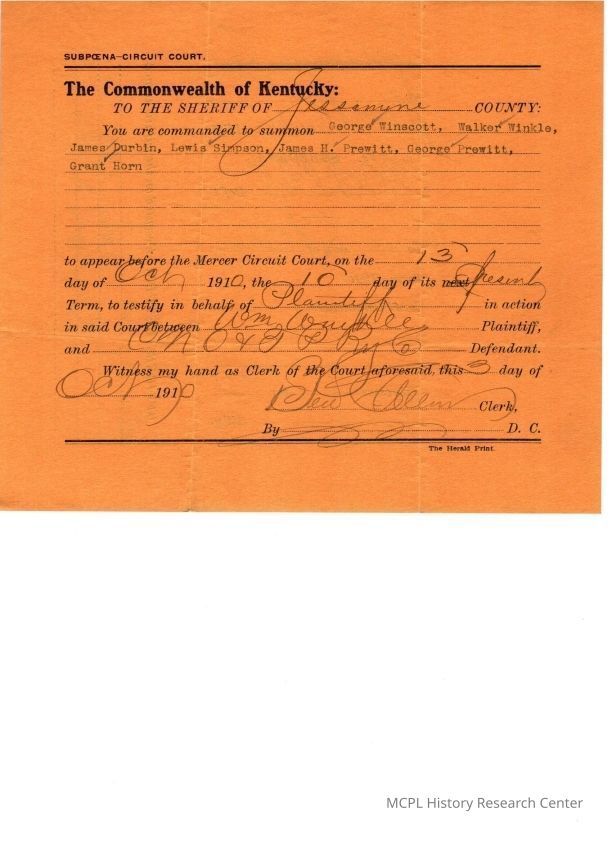 SUBPŒNA—CIRCUIT COURT.
The Commonwealth of Kentucky:
TO THE SHERIFF OF Jessamine COUNTY:
You are commanded to summon George Winscott, Walker Winkle,
James Durbin, Lewis Simpson, James H. Prewitt, George Prewitt,
Grant Horn
to appear before the Mercer Circuit Court, on the 13
day of Oct 1910, the 10 day of its next Present
Term, to testify in behalf of Plaintiff in action
in said Court between Wm Plaintiff,
and C N O & T P Ry Co Defendant.
Witness my hand as Clerk of the Court aforesaid, this 3 day of
Oct 1910
Ben Allen Clerk,
By D. C.
The Herald Print.
MCPL History Research Center